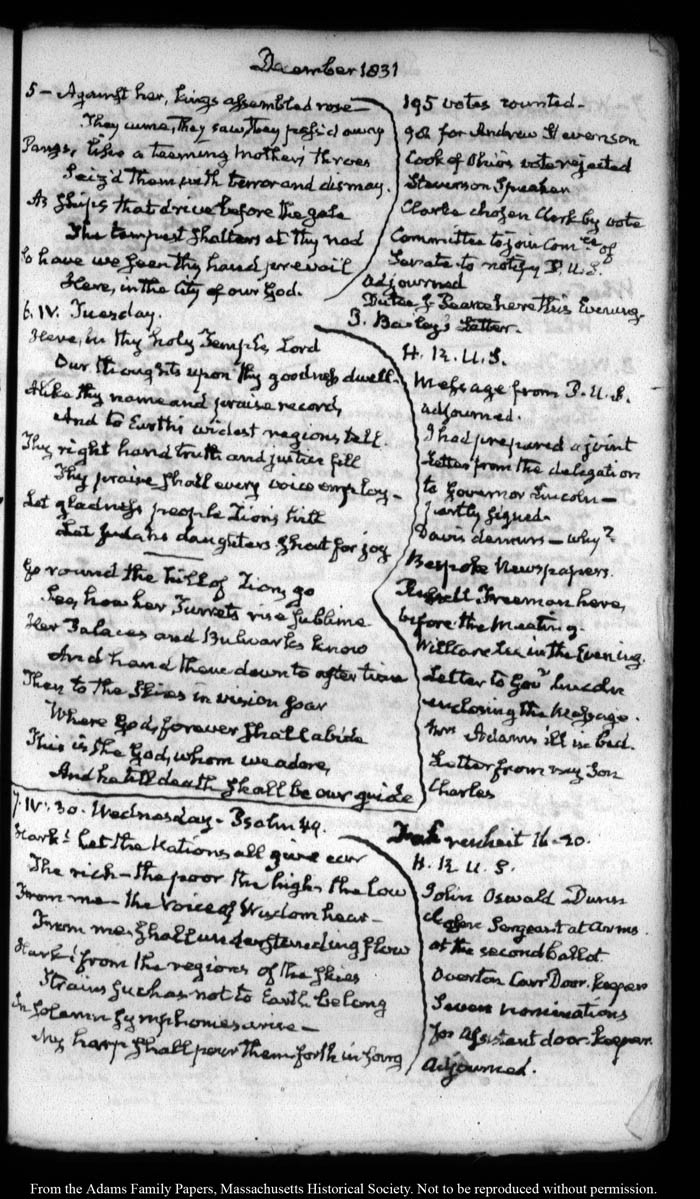 December 1831
5 — Against her, kings assembled rose —
They came, they saw, they pass'd away
Pangs, like a teeming Mother's throes
Seiz'd them with terror and dismay.
As Ships that drive before the gale
The tempest shatters at thy nod
So have we seen thy hand prevail
Here, in the city of our God.
195 votes counted —
98 for Andrew Stevenson
Cook of Ohio's vote rejected
Stevenson Speaker
Clarke chosen Clerk by vote
Committee to join Com.ee of
Senate to notify P. U. S.
Adjourned
Dutee J. Pearce here this Evening.
B. Bailey's Letter.
6. IV. Tuesday.
Here, in thy holy Temple, Lord
Our thoughts upon thy goodness dwell.
Alike thy name and praise record,
And to Earth's widest regions tell.
Thy right hand truth and justice fill
Thy praise shall every voice employ —
Let gladness people Zion's hill
Let Judah's daughters shout for joy
Go round the hill of Zion, go
See, how her Turrets rise sublime
Her Palaces and Bulwarks know
And hand them down to after time
Then to the Skies in vision soar
Where God, forever shall abide
This is the God, whom we adore,
And he till death shall be our guide
H. R. U. S.
Message from P. U. S.
adjourned.
I had prepared a joint
Letter from the delegation
to Governor Lincoln —
partly signed.
Davis demurs — why?
Bespoke Newspapers.
Russell Freeman here,
before the Meeting.
in the Evening.
Letter to Govr Lincoln
enclosing the Message.
Mrs Adams ill in bed.
Letter from my Son
Charles
7. IV. 30. Wednesday — Psalm 49.
Hark! let the Nations all give ear
The rich — the poor the high the low
From me — the voice of Wisdom hear —
From me shall understanding flow
Hark! from the regions of the skies
Strains such as not to Earth belong
In solemn symphonies arise —
My harp shall pour them forth in song
16-20.
H. R. U. S.
John Oswald Dunn
chosen Sergeant at Arms.
at the second ballot
Overton Carr Door-keeper
Seven nominations
for assistant door-keeper.
Adjourned.
From the Adams Family Papers, Massachusetts Historical Society. Not to be reproduced without permission.